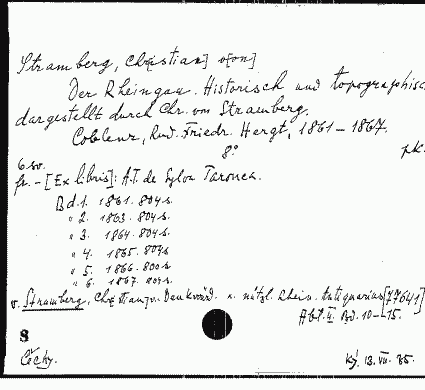 Stramberg, Chr[istian] v[on]
Der Rheingau. Historisch und topographisch
dargestellt durch Chr. von Stramberg.
Coblenz, Rud. Friedr. Hergt, 1861-1867.
8° pk.
6 sv.
fr. - [Ex libris]: A.T. de Sylva Tarouca.
Bd. 1. 1861. 804 s.
" 2. 1863. 804 s.
" 3. 1864. 804 s.
" 4. 1865. 804 s.
" 5. 1866. 800 s.
" 6. 1867. 804 s.
v. Stramberg, Christian v. Denkwürd. u. nützl. Rhein. Antiquarius [77641]
Abt. II. Bd. 10-15.
8
Čechy.
Ký. 13. VII. 85.